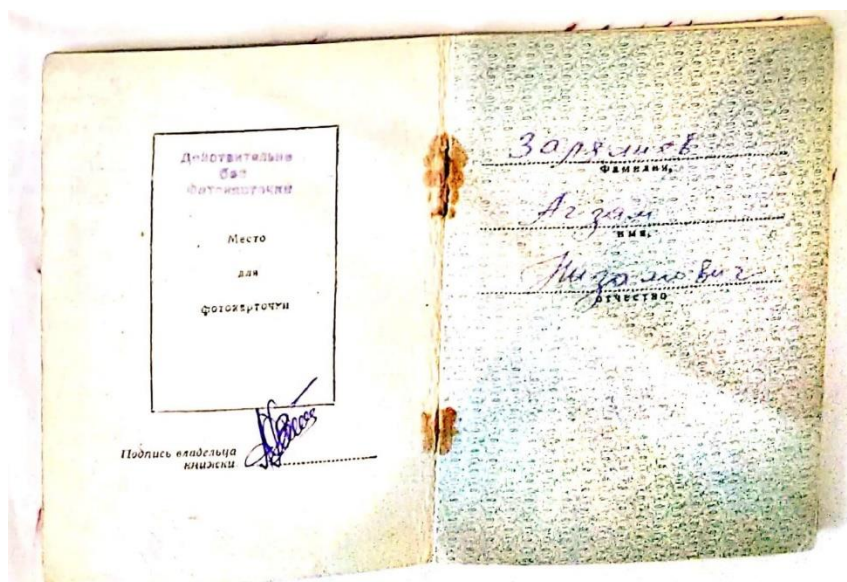 Действительна
без
фотокарточки
Место
для
фотокарточки
Подпись владельца
книжки
Зарялиев
фамилия,
Агзам
имя,
Низамович
отчество